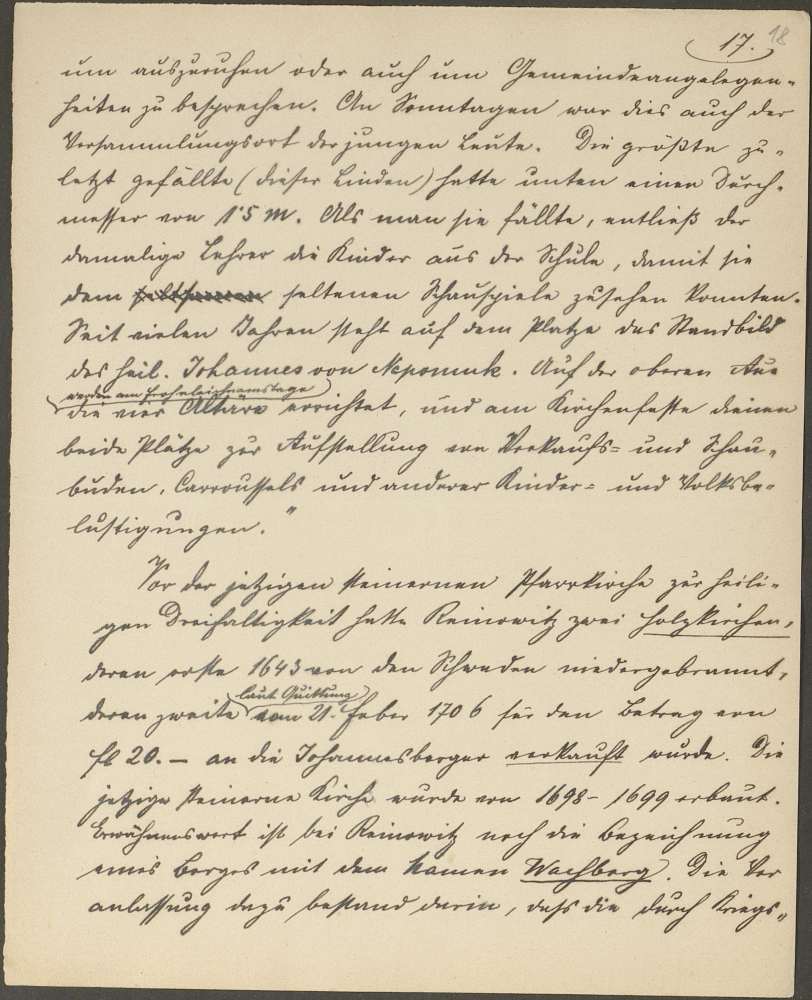 17. 18
um auszuruhen oder auch um Gemeindeangelegen-
heiten zu besprechen. An Sonntagen war dies auch der
Versammlungsort der jungen Leute. Die größte zu-
letzt gefällte (dieser Linden) hatte unten einen Durch-
messer von 1·5 M. Als man sie fällte, entließ der
damalige Lehrer die Kinder aus der Schule, damit sie
dem seltenen Schauspiele zusehen konnten.
Seit vielen Jahren steht auf dem Platze das Standbild
des heil. Johannes von Nepomuk. Auf der oberen Aue
werden am Frohnleichnamstage
die vier Altäre errichtet, und am Kirchenfeste dienen
beide Plätze zur Aufstellung von Verkaufs= und Schau-
buden, Carroussels und anderer Kinder= und Volksbe-
lustigungen."
Vor der jetzigen steinernen Pfarrkirche zur heili-
gen Dreifaltigkeit hatte Reinowitz zwei Holzkirchen,
deren erste 1643 von den Schweden niedergebrannt,
laut Quittung
deren zweite vom 21. Feber 1706 für den Betrag von
fl 20.— an die Johannesberger verkauft wurde. Die
jetzige steinerne Kirche wurde von 1698–1699 erbaut.
Erwähnenswert ist bei Reinowitz noch die Bezeichnung
eines Berges mit dem Namen Wachberg. Die Ver
anlassung dazu bestand darin, dass die durch Kriegs-